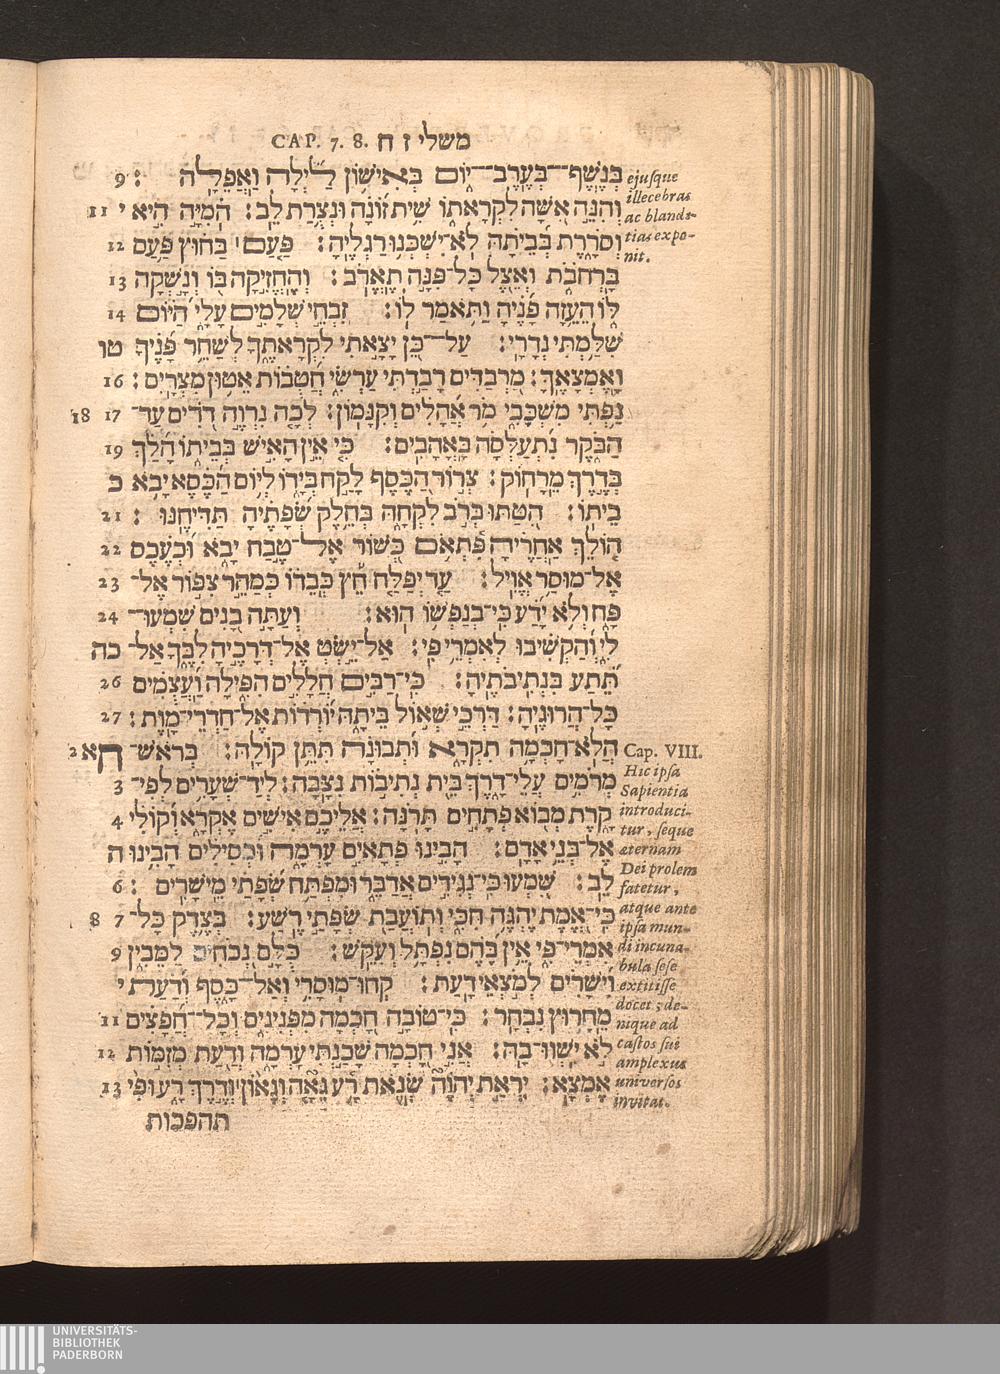 CAP. 7. 8. משלי ז ח
בְּנֶשֶׁף־בְּעֶרֶב־יוֹם בְּאִישׁוֹן לַיְלָה וַאֲפֵלָה : 9
וְהִנֵּה אִשָּׁה לִקְרָאתוֹ שִׁית זוֹנָה וּנְצֻרַת לֵב : הֹמִיָּה הִיא י 11
וְסֹרָרֶת בְּבֵיתָהּ לֹא־יִשְׁכְּנוּ רַגְלֶיהָ : פַּעַם ׀ בַּחוּץ פַּעַם 12
בָּרְחֹבֹת וְאֵצֶל כָּל־פִּנָּה תֶאֱרֹב : וְהֶחֱזִיקָה בּוֹ וְנָשְׁקָה 13
לּוֹ הֵעֵזָה פָנֶיהָ וַתֹּאמַר לוֹ : זִבְחֵי שְׁלָמִים עָלָי הַיּוֹם 14
שִׁלַּמְתִּי נְדָרָי : עַל־כֵּן יָצָאתִי לִקְרָאתֶךָ לְשַׁחֵר פָּנֶיךָ טו
וָאֶמְצָאֶךָּ : מַרְבַדִּים רָבַדְתִּי עַרְשִׂי חֲטֻבוֹת אֵטוּן מִצְרָיִם : 16
נַפְתִּי מִשְׁכָּבִי מֹר אֲהָלִים וְקִנָּמוֹן : לְכָה נִרְוֶה דֹדִים עַד־ 17 18
הַבֹּקֶר נִתְעַלְּסָה בָּאֳהָבִים : כִּי אֵין הָאִישׁ בְּבֵיתוֹ הָלַךְ 19
בְּדֶרֶךְ מֵרָחוֹק : צְרוֹר הַכֶּסֶף לָקַח בְּיָדוֹ לְיוֹם הַכֵּסֶא יָבֹא כ
בֵיתוֹ : הִטַּתּוּ בְּרֹב לִקְחָהּ בְּחֵלֶק שְׂפָתֶיהָ תַּדִּיחֶנּוּ : 21
הוֹלֵךְ אַחֲרֶיהָ פִּתְאֹם כְּשׁוֹר אֶל־טֶבַח יָבֹא וּכְעֶכֶס 22
אֶל־מוּסַר אֱוִיל : עַד יְפַלַּח חֵץ כְּבֵדוֹ כְּמַהֵר צִפּוֹר אֶל־ 23
פָּח וְלֹא יָדַע כִּי־בְנַפְשׁוֹ הוּא : וְעַתָּה בָנִים שִׁמְעוּ־ 24
לִי וְהַקְשִׁיבוּ לְאִמְרֵי פִי : אַל־יֵשְׂטְ אֶל־דְּרָכֶיהָ לִבֶּךָ אַל־ כה
תֵּתַע בִּנְתִיבֹתֶיהָ : כִּי־רַבִּים חֲלָלִים הִפִּילָה וַעֲצֻמִים 26
כָּל־הֲרוּגֶיהָ : דַּרְכֵי שְׁאוֹל בֵּיתָהּ יֹרְדוֹת אֶל־חַדְרֵי־מָוֶת : 27
הֲלֹא־חָכְמָה תִקְרָא וּתְבוּנָה תִּתֵּן קוֹלָהּ : בְּרֹאשׁ־ ח א 2
מְרֹמִים עֲלֵי־דָרֶךְ בֵּית נְתִיבוֹת נִצָּבָה : לְיַד־שְׁעָרִים לְפִי־ 3
קָרֶת מְבוֹא פְתָחִים תָּרֹנָּה : אֲלֵיכֶם אִישִׁים אֶקְרָא וְקוֹלִי 4
אֶל־בְּנֵי אָדָם : הָבִינוּ פְתָאיִם עָרְמָה וּכְסִילִים הָבִינוּ ה
לֵב : שִׁמְעוּ כִּי־נְגִידִים אֲדַבֵּר וּמִפְתַּח שְׂפָתַי מֵישָׁרִים : 6
כִּי־אֱמֶת יֶהְגֶּה חִכִּי וְתוֹעֲבַת שְׂפָתַי רֶשַׁע : בְּצֶדֶק כָּל־ 7 8
אִמְרֵי־פִי אֵין בָּהֶם נִפְתָּל וְעִקֵּשׁ : כֻּלָּם נְכֹחִים לַמֵּבִין 9
וִישָׁרִים לְמֹצְאֵי דָעַת : קְחוּ־מוּסָרִי וְאַל־כָּסֶף וְדַעַת י
מֵחָרוּץ נִבְחָר : כִּי־טוֹבָה חָכְמָה מִפְּנִינִים וְכָל־חֲפָצִים 11
לֹא יִשְׁווּ־בָהּ : אֲנִי חָכְמָה שָׁכַנְתִּי עָרְמָה וְדַעַת מְזִמּוֹת 12
אֶמְצָא : יִרְאַת יְהוָה שְׂנֹאת רָע גֵּאָה וְגָאוֹן וְדֶרֶךְ רָע וּפִי 13
תהפכות
ejusque
illecebras
ac blandi-
tias expo-
nit.
Cap. VIII.
Hic ipsa
Sapientia
introduci-
tur, seque
æternam
Dei prolem
fatetur,
atque ante
ipsa mun-
di incuna-
bula sese
extitisse
docet; de-
nique ad
castos sui
amplexus
universos
invitat.
UNIVERSITÄTS-
BIBLIOTHEK
PADERBORN